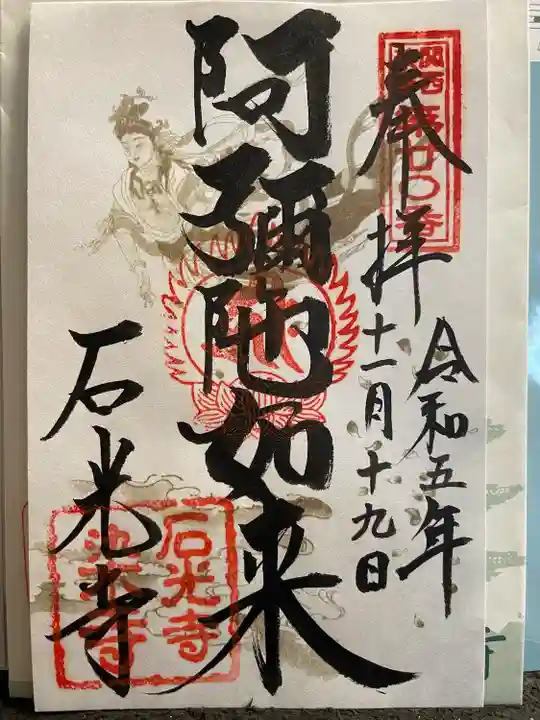 奉拝
令和五年
十一月十九日
阿彌陀如来
石光寺
関西
石光寺